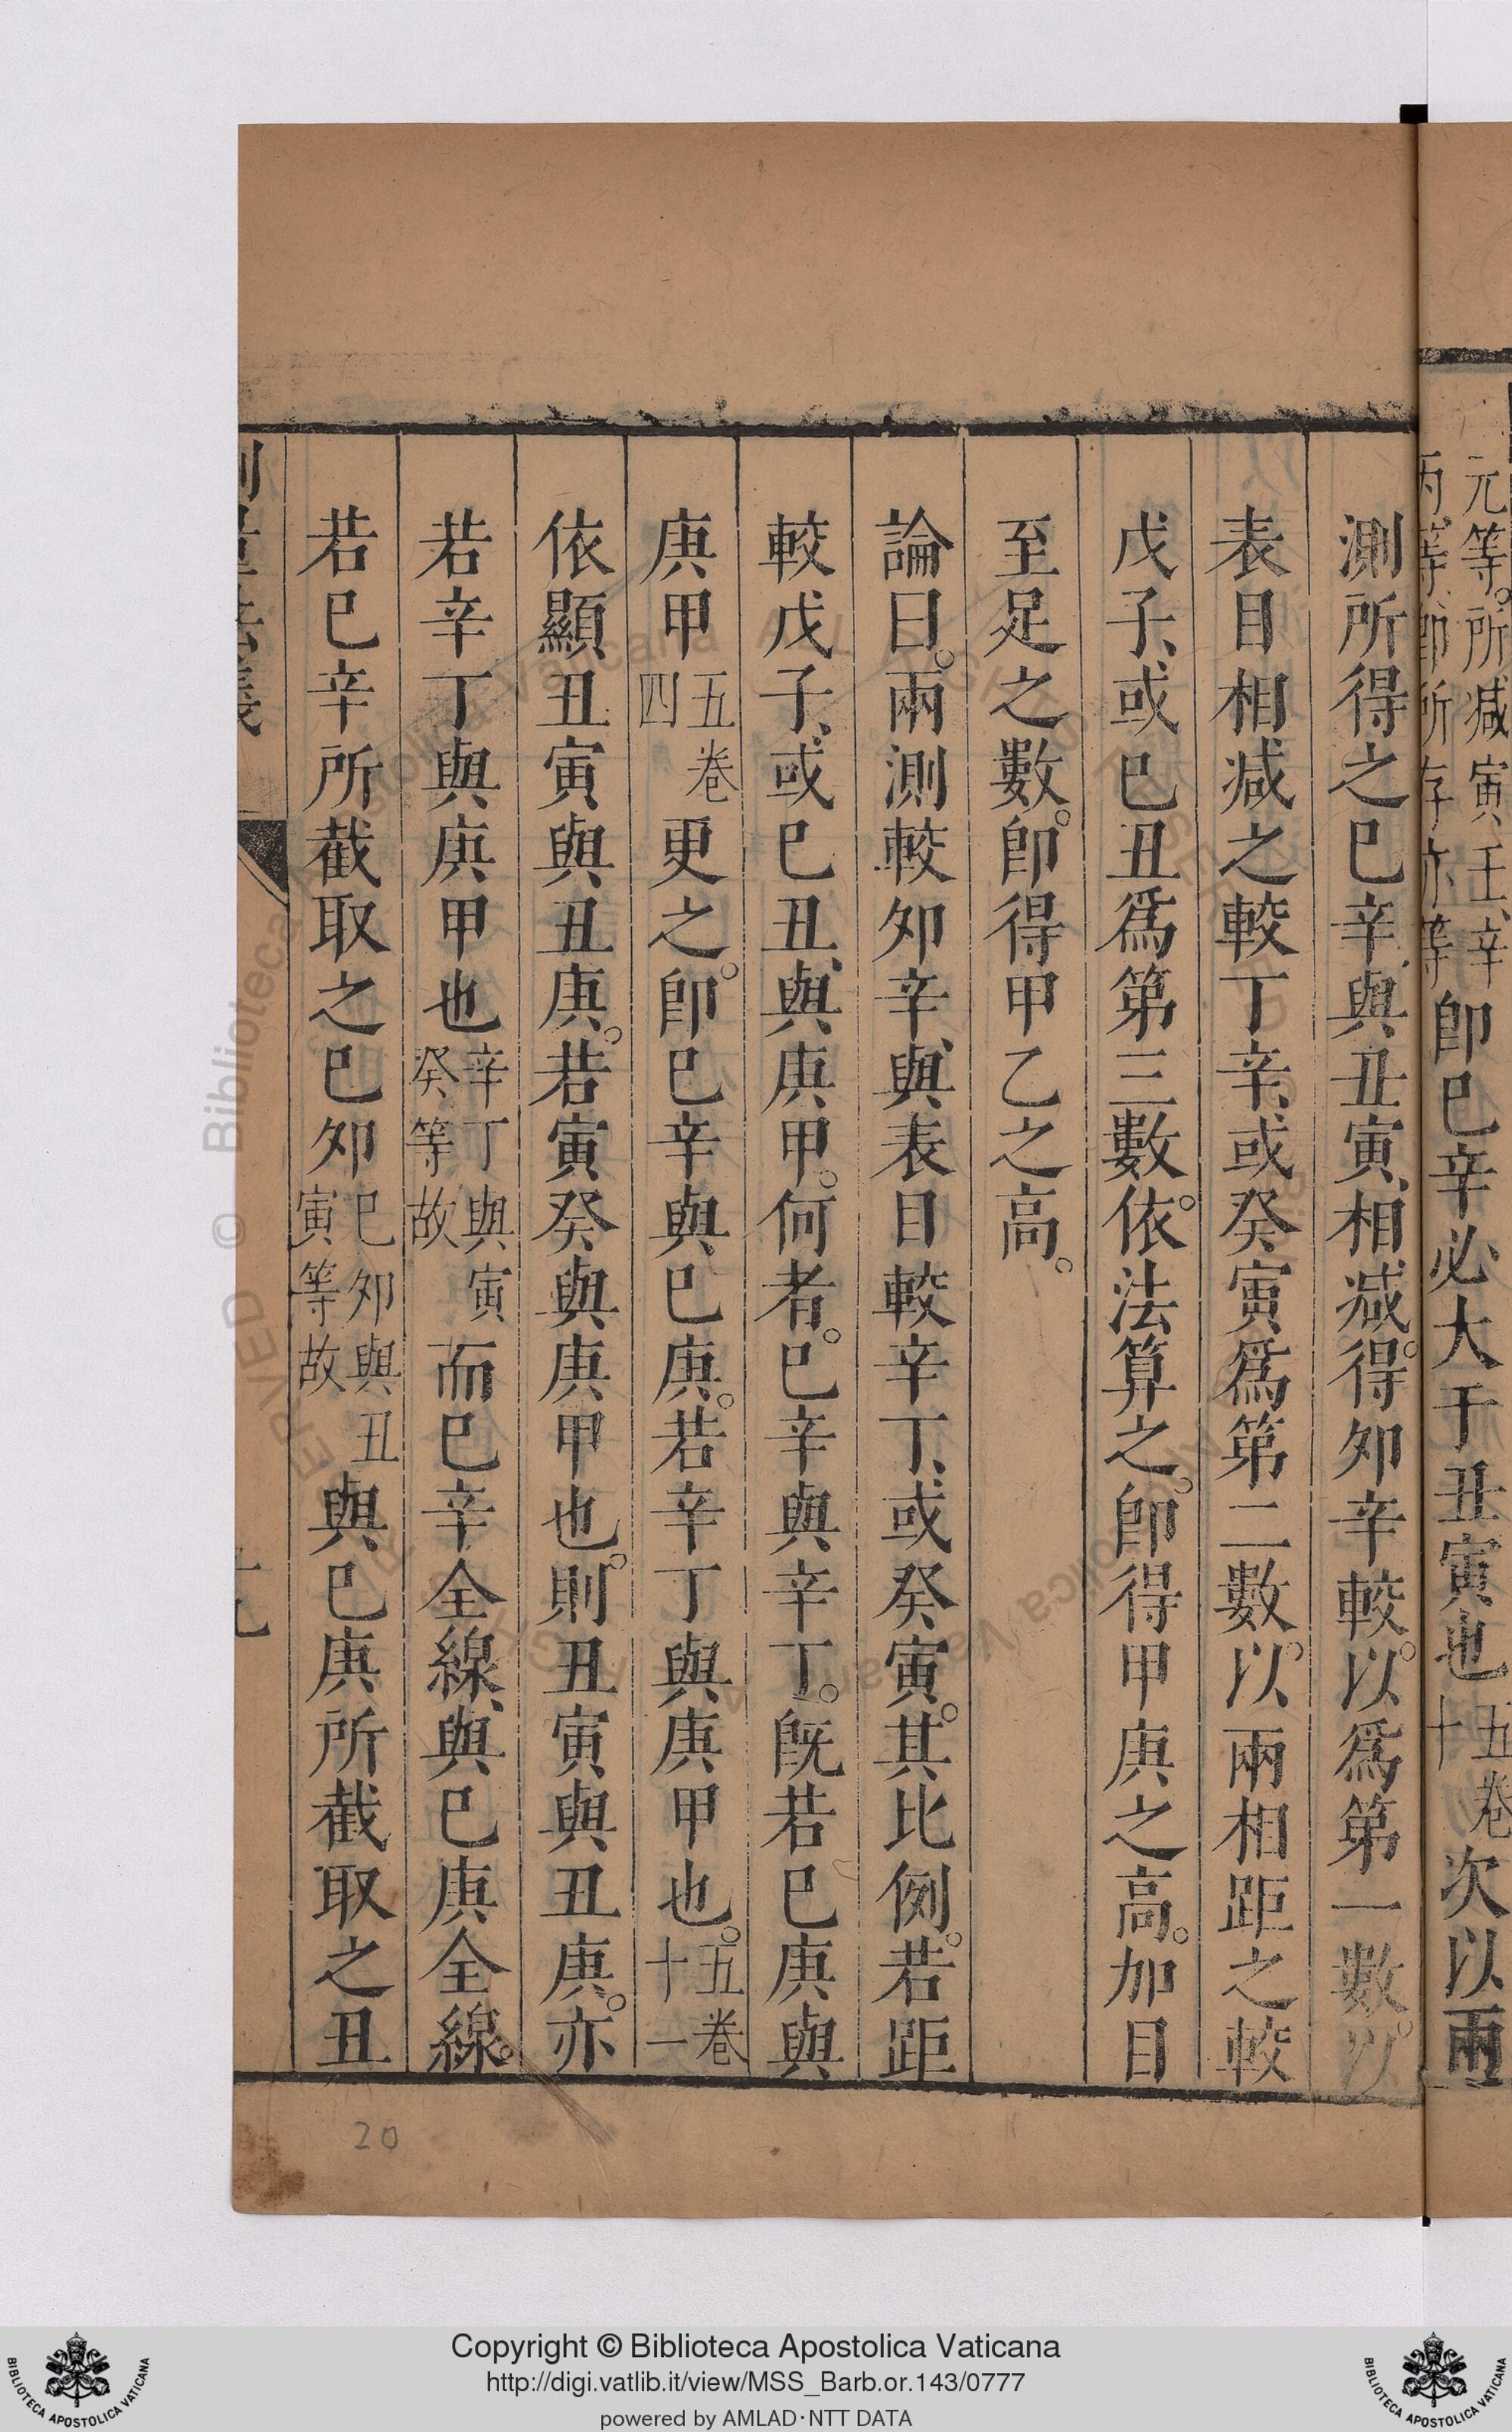 元等。所减寅壬、辛
丙等、卽所存亦等
卽巳辛必大于丑寅也
五卷
十
次以兩
測所得之巳辛、與丑寅、相减。得夘辛較。以爲第一數。以
表目相减之較丁辛、或癸寅爲第二數。以兩相距之較
戊子、或巳丑爲第三數。依法算之。卽得甲庚之高。加目
至足之數。卽得甲乙之高。
論曰。兩測較夘辛、與表目較辛丁、或癸寅。其比例。若距
較戊子、或巳丑、與庚甲。何者。巳辛與辛丁。旣若巳庚與
庚甲
五卷
四
更之。卽巳辛與巳庚。若辛丁與庚甲也。
五卷
十一
依顯丑寅與丑庚。若寅癸與庚甲也。則丑寅與丑庚。亦
若辛丁與庚甲也
辛丁與寅
癸等故
而巳辛全線、與巳庚全線。
若巳辛所截取之巳夘
巳夘與丑
寅等故
與巳庚所截取之丑
20
Copyright © Biblioteca Apostolica Vaticana
http://digi.vatlib.it/view/MSS_Barb.or.143/0777
powered by AMLAD·NTT DATA
BIBLIOTECA APOSTOLICA VATICANA
BIBLIOTECA APOSTOLICA VATICANA